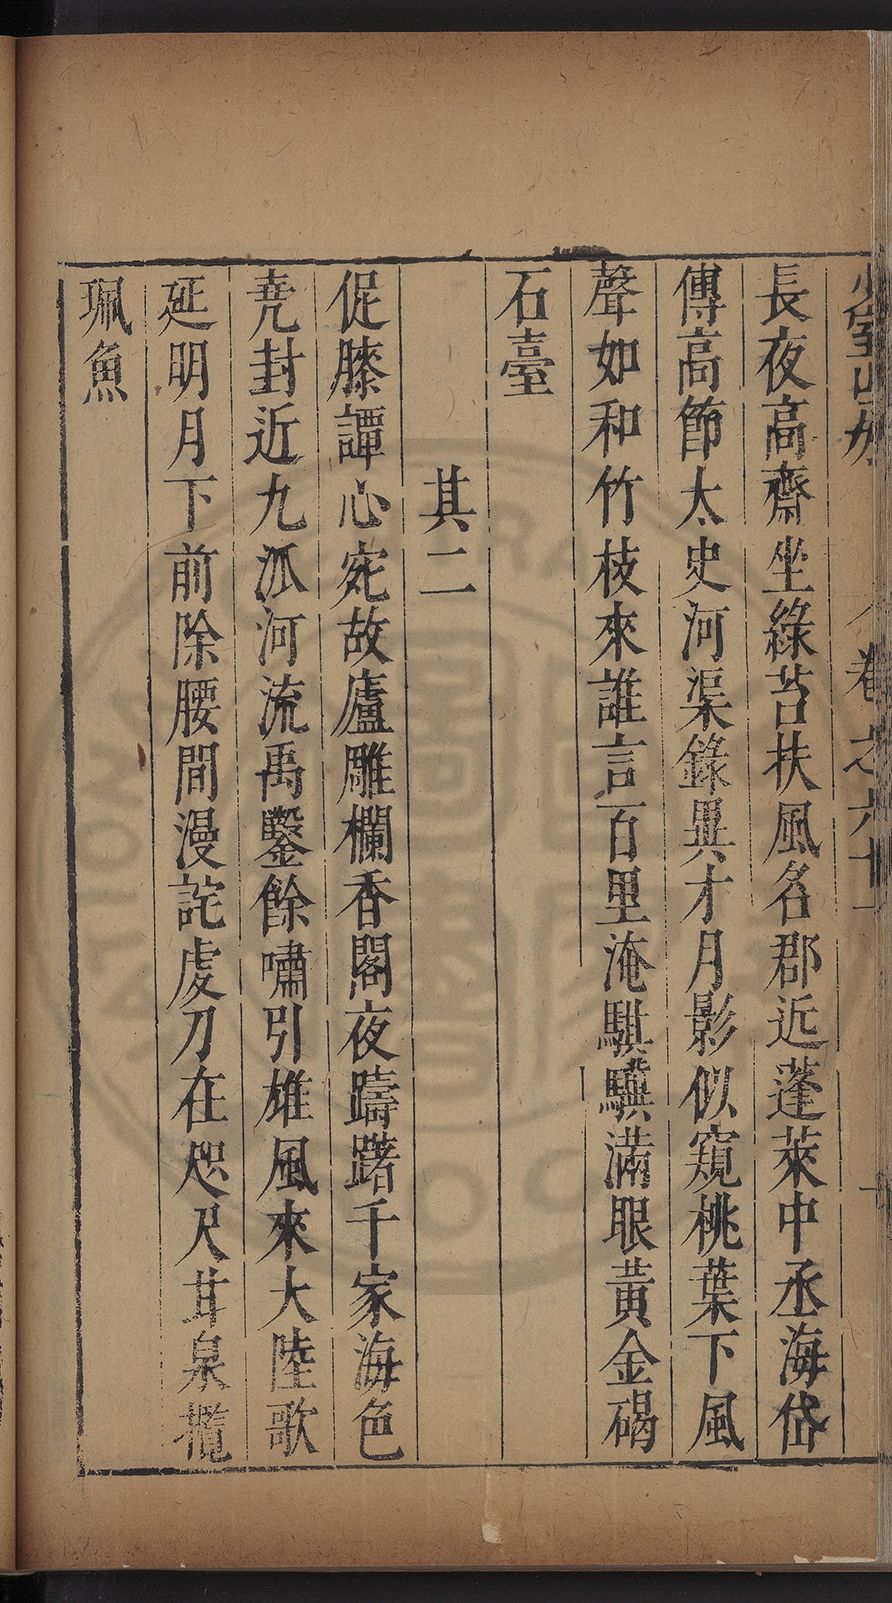 少室山房
卷之六十一
長夜高齋坐綠苔扶風名郡近蓬萊中丞海岱
傳高節太史河渠錄異才月影似窺桃葉下風
聲如和竹枝來誰言百里淹騏驥滿眼黃金碣
石臺
其二
促膝譚心宛故廬雕欄香閣夜躊躇千家海色
堯封近九派河流禹鑿餘嘯引雄風來大陸歌
延明月下前除腰間漫詫虔刀在咫尺甘泉攬
珮魚